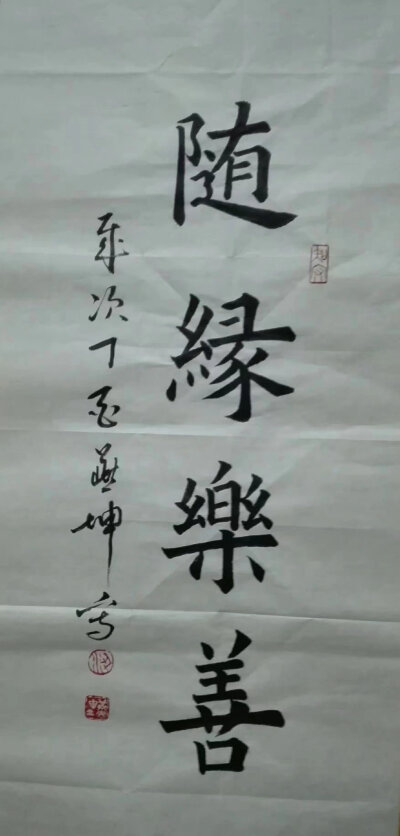 随緣樂善
歲次丁酉 坤寫